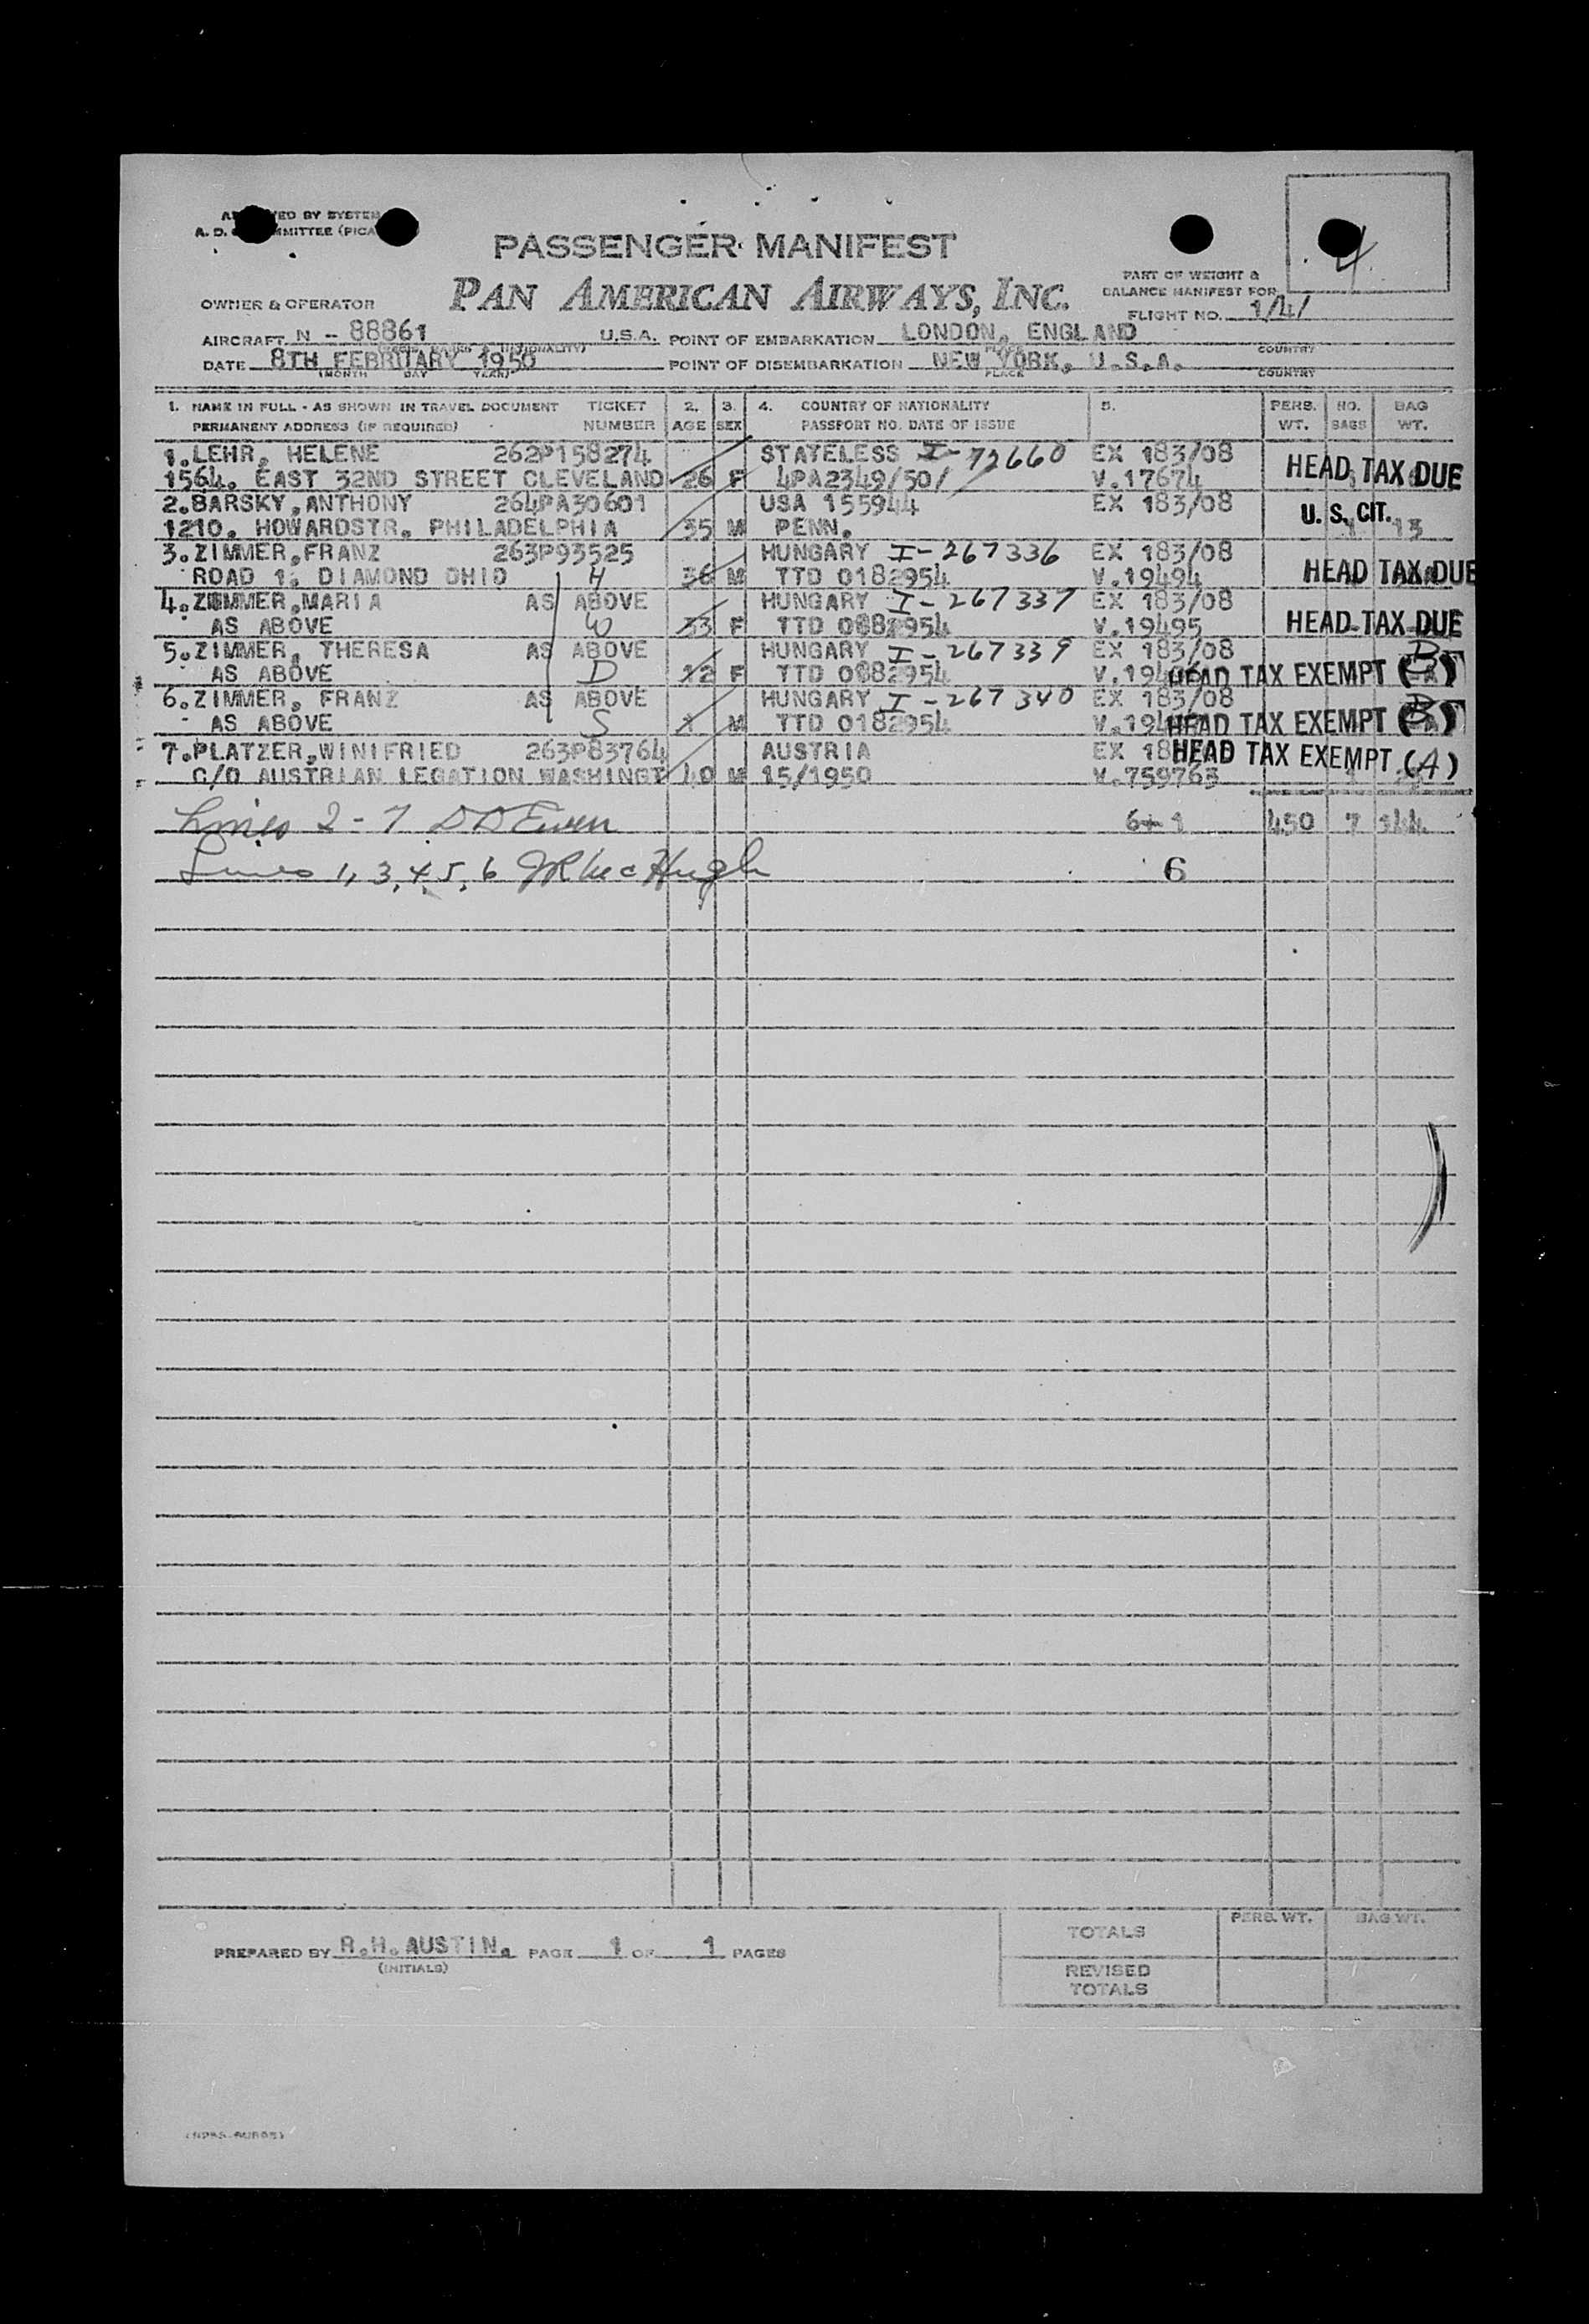 4
PASSENGER MANIFEST
PAN AMERICAN AIRWAYS, INC.
PART OF WEIGHT &
BALANCE MANIFEST FOR
OWNER & OPERATOR
FLIGHT NO. 1/4/
AIRCRAFT N - 88861 U.S.A. POINT OF EMBARKATION LONDON, ENGLAND
PLACE COUNTRY
DATE 8TH FEBRUARY 1950 POINT OF DISEMBARKATION NEW YORK, U.S.A.
(MONTH DAY YEAR) PLACE COUNTRY
1. NAME IN FULL - AS SHOWN IN TRAVEL DOCUMENT TICKET 2. 3. 4. COUNTRY OF NATIONALITY 5. PERS. NO. BAG
PERMANENT ADDRESS (IF REQUIRED) NUMBER AGE SEX PASSPORT NO. DATE OF ISSUE WT. BAGS WT.
1.LEHR, HELENE 262P158274 STATELESS I-72660 EX 183/08
1564. EAST 32ND STREET CLEVELAND 26 F 4PA2349/50/ V.17674 HEAD TAX DUE
2.BARSKY,ANTHONY 264PA30601 USA 155944 EX 183/08
1210. HOWARDSTR. PHILADELPHIA 35 M PENN. U. S. CIT. 13
3.ZIMMER,FRANZ 263P93525 HUNGARY I-267336 EX 183/08
ROAD 1. DIAMOND OHIO H 36 M TTD 0182954 V.19494 HEAD TAX DUE
4.ZIMMER,MARIA AS ABOVE HUNGARY I-267337 EX 183/08
AS ABOVE W 33 F TTD 0882954 V.19495 HEAD TAX DUE
5.ZIMMER, THERESA AS ABOVE HUNGARY I-267339 EX 183/08
AS ABOVE D 12 F TTD 0882954 HEAD TAX EXEMPT (B)
6.ZIMMER, FRANZ AS ABOVE HUNGARY I-267340 EX 183/08
AS ABOVE S 1 M TTD 0182954 HEAD TAX EXEMPT (B)
7.PLATZER,WINIFRIED 263P83764 AUSTRIA EX HEAD TAX EXEMPT (A)
C/O AUSTRIAN LEGATION WASHINGT 40 M 15/1950 V.759763
Lines 2-7 DD Ewen 6+1 450 7 144
Lines 1, 3, 4 5, 6 JR McHugh 6
TOTALS PERS. WT. BAG WT.
PREPARED BY R.H. AUSTIN. PAGE 1 OF 1 PAGES
(INITIALS)
REVISED
TOTALS